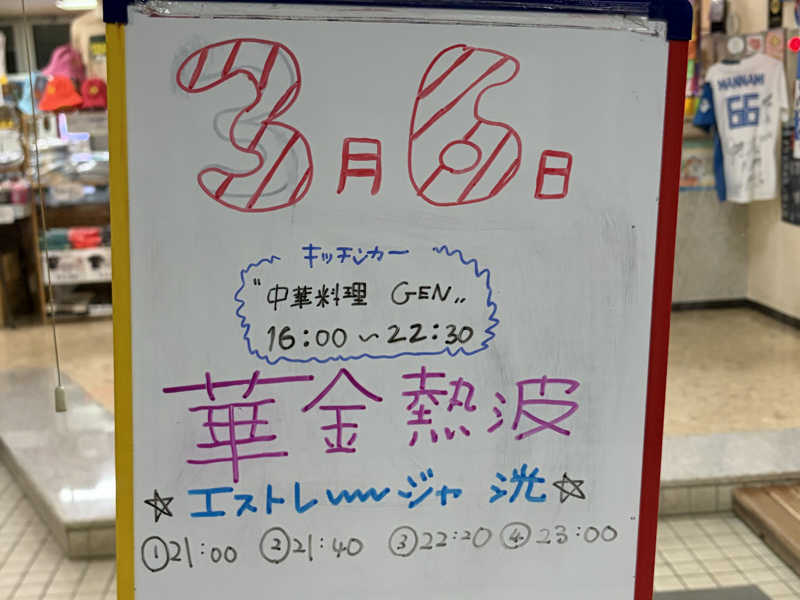 3月6日
キッチンカー
"中華料理 GEN„
16:00〜22:30
華金熱波
☆エストレ〰〰ジャ 洸☆
①21:00 ②21:40 ③22:20 ④23:00
MANNAMI
66